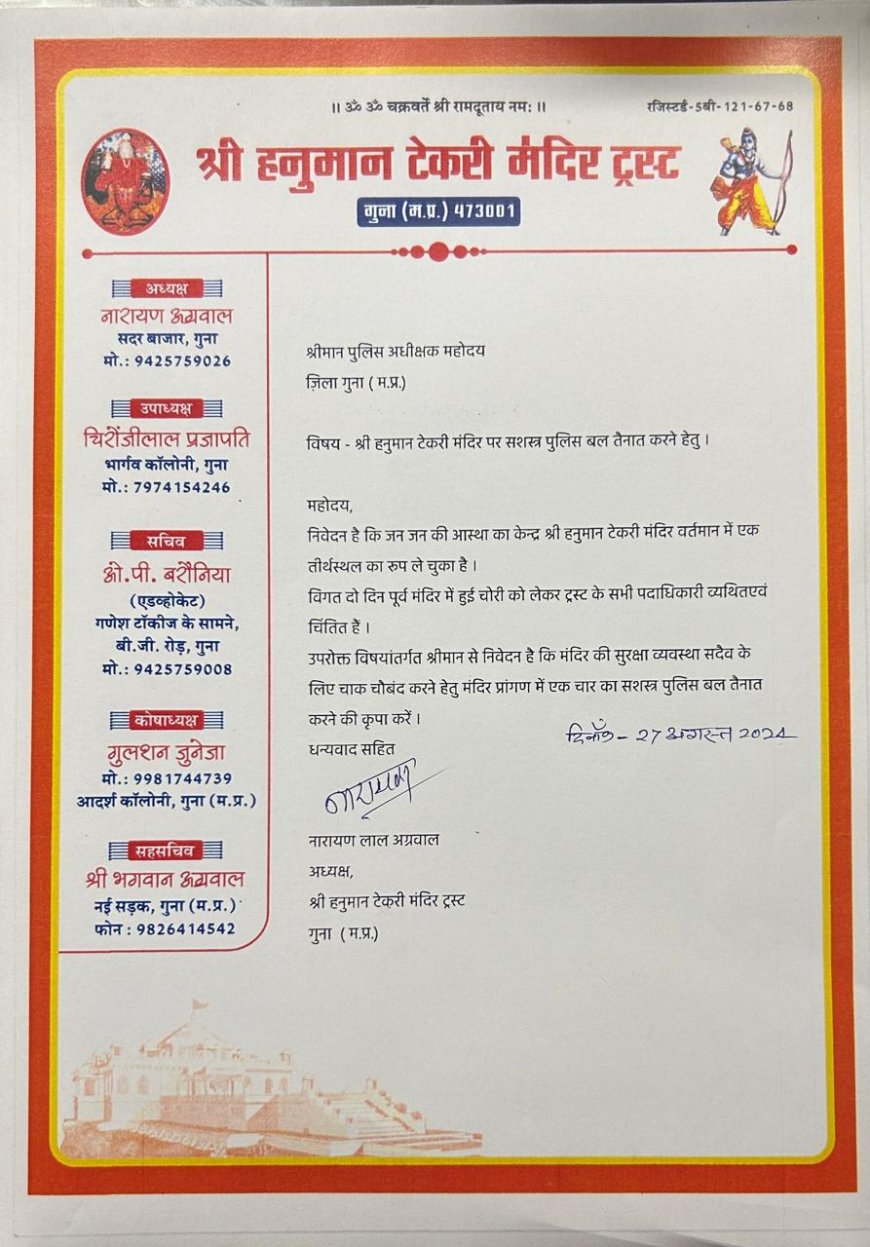 ।। ॐ ॐ चक्रवर्ते श्री रामदूताय नमः ।।
रजिस्टर्ड-5बी-121-67-68
श्री हनुमान टेकरी मंदिर ट्रस्ट
गुना (म.प्र.) 473001
अध्यक्ष
नारायण अग्रवाल
सदर बाजार, गुना
मो.: 9425759026
उपाध्यक्ष
चिरोंजीलाल प्रजापति
भार्गव कॉलोनी, गुना
मो.: 7974154246
सचिव
ओ.पी. बरोनिया
(एडव्होकेट)
गणेश टॉकीज के सामने,
बी.जी. रोड़, गुना
मो.: 9425759008
कोषाध्यक्ष
गुलशन जुनेजा
मो.: 9981744739
आदर्श कॉलोनी, गुना (म.प्र.)
सहसचिव
श्री भगवान अग्रवाल
नई सड़क, गुना (म.प्र.)
फोन : 9826414542
श्रीमान पुलिस अधीक्षक महोदय
ज़िला गुना ( म.प्र.)
विषय - श्री हनुमान टेकरी मंदिर पर सशस्त्र पुलिस बल तैनात करने हेतु ।
महोदय,
निवेदन है कि जन जन की आस्था का केन्द्र श्री हनुमान टेकरी मंदिर वर्तमान में एक
तीर्थस्थल का रुप ले चुका है ।
विगत दो दिन पूर्व मंदिर में हुई चोरी को लेकर ट्रस्ट के सभी पदाधिकारी व्यथितएवं
चिंतित हैं ।
उपरोक्त विषयांतर्गत श्रीमान से निवेदन है कि मंदिर की सुरक्षा व्यवस्था सदैव के
लिए चाक चौबंद करने हेतु मंदिर प्रांगण में एक चार का सशस्त्र पुलिस बल तैनात
करने की कृपा करें ।
दिनाँक - 27 अगस्त 2024
धन्यवाद सहित
नारायण
नारायण लाल अग्रवाल
अध्यक्ष,
श्री हनुमान टेकरी मंदिर ट्रस्ट
गुना ( म.प्र.)